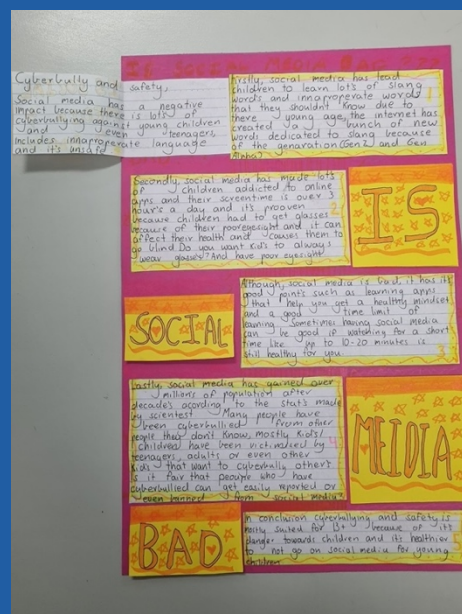 IS SOCIAL MEDIA BAD
Cyberbully and safety,
Social media has a negative
impact because there is lots of
cyberbullying against young children
and even teenagers,
includes innaproperate language
and it's unsafe
Firstly, social media has lead
children to learn lot's of slang
words and innaproperate words
that they shouldn't know due to
there young age, the internet has
created a bunch of new
words dedicated to slang because
of the genaration (Gen Z) and Gen
Alpha?
Secondly, social media has made lot's
of children addicted to online
apps and their screentime is over 3
hour's a day and it's proven
because children had to get glasses
because of their poor eyesight and it can
affect their health and causes them to
go blind Do you want kid's to always
wear glasses? And have poor eyesight
IS
Although, social media is bad, it has it's
good point's such as learning apps
that help you get a healthy mindset
and a good time limit of
learning sometimes having social media
can be good if watching for a short
time like up to 10-20 minutes is
still healthy for you.
SOCIAL
Lastly, social media has gained over
millions of population after
decade's acording to the stat's made
by scientest Many people have
been cyberbullied from other
people they don't know, mostly kid's/
children have been victimised by
teenagers, adults or even other
kid's that want to cyberbully other's
is it fair that people who have
cyberbullied can get easily reported or
even banned from social media?
MEIDIA
BAD
In conclusion cyberbullying and safety is
mostly suited for 13+ because of it's
danger towards children and it's healthier
to not go on social media for young
children